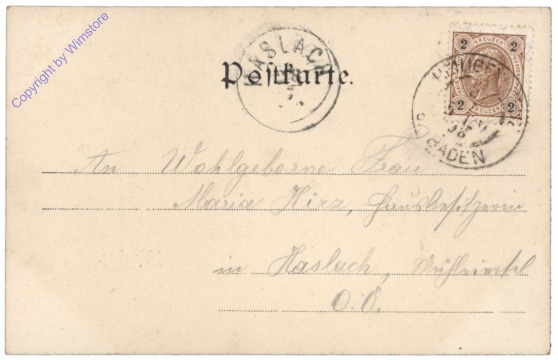 Copyright by Wimstore
HASLACH
Postkarte.
2 KREUZER 2
2 2
BADEN
An Wohlgeborne Frau
Maria Hirz, Hausbesitzerin
in Haslach,
O.Ö.